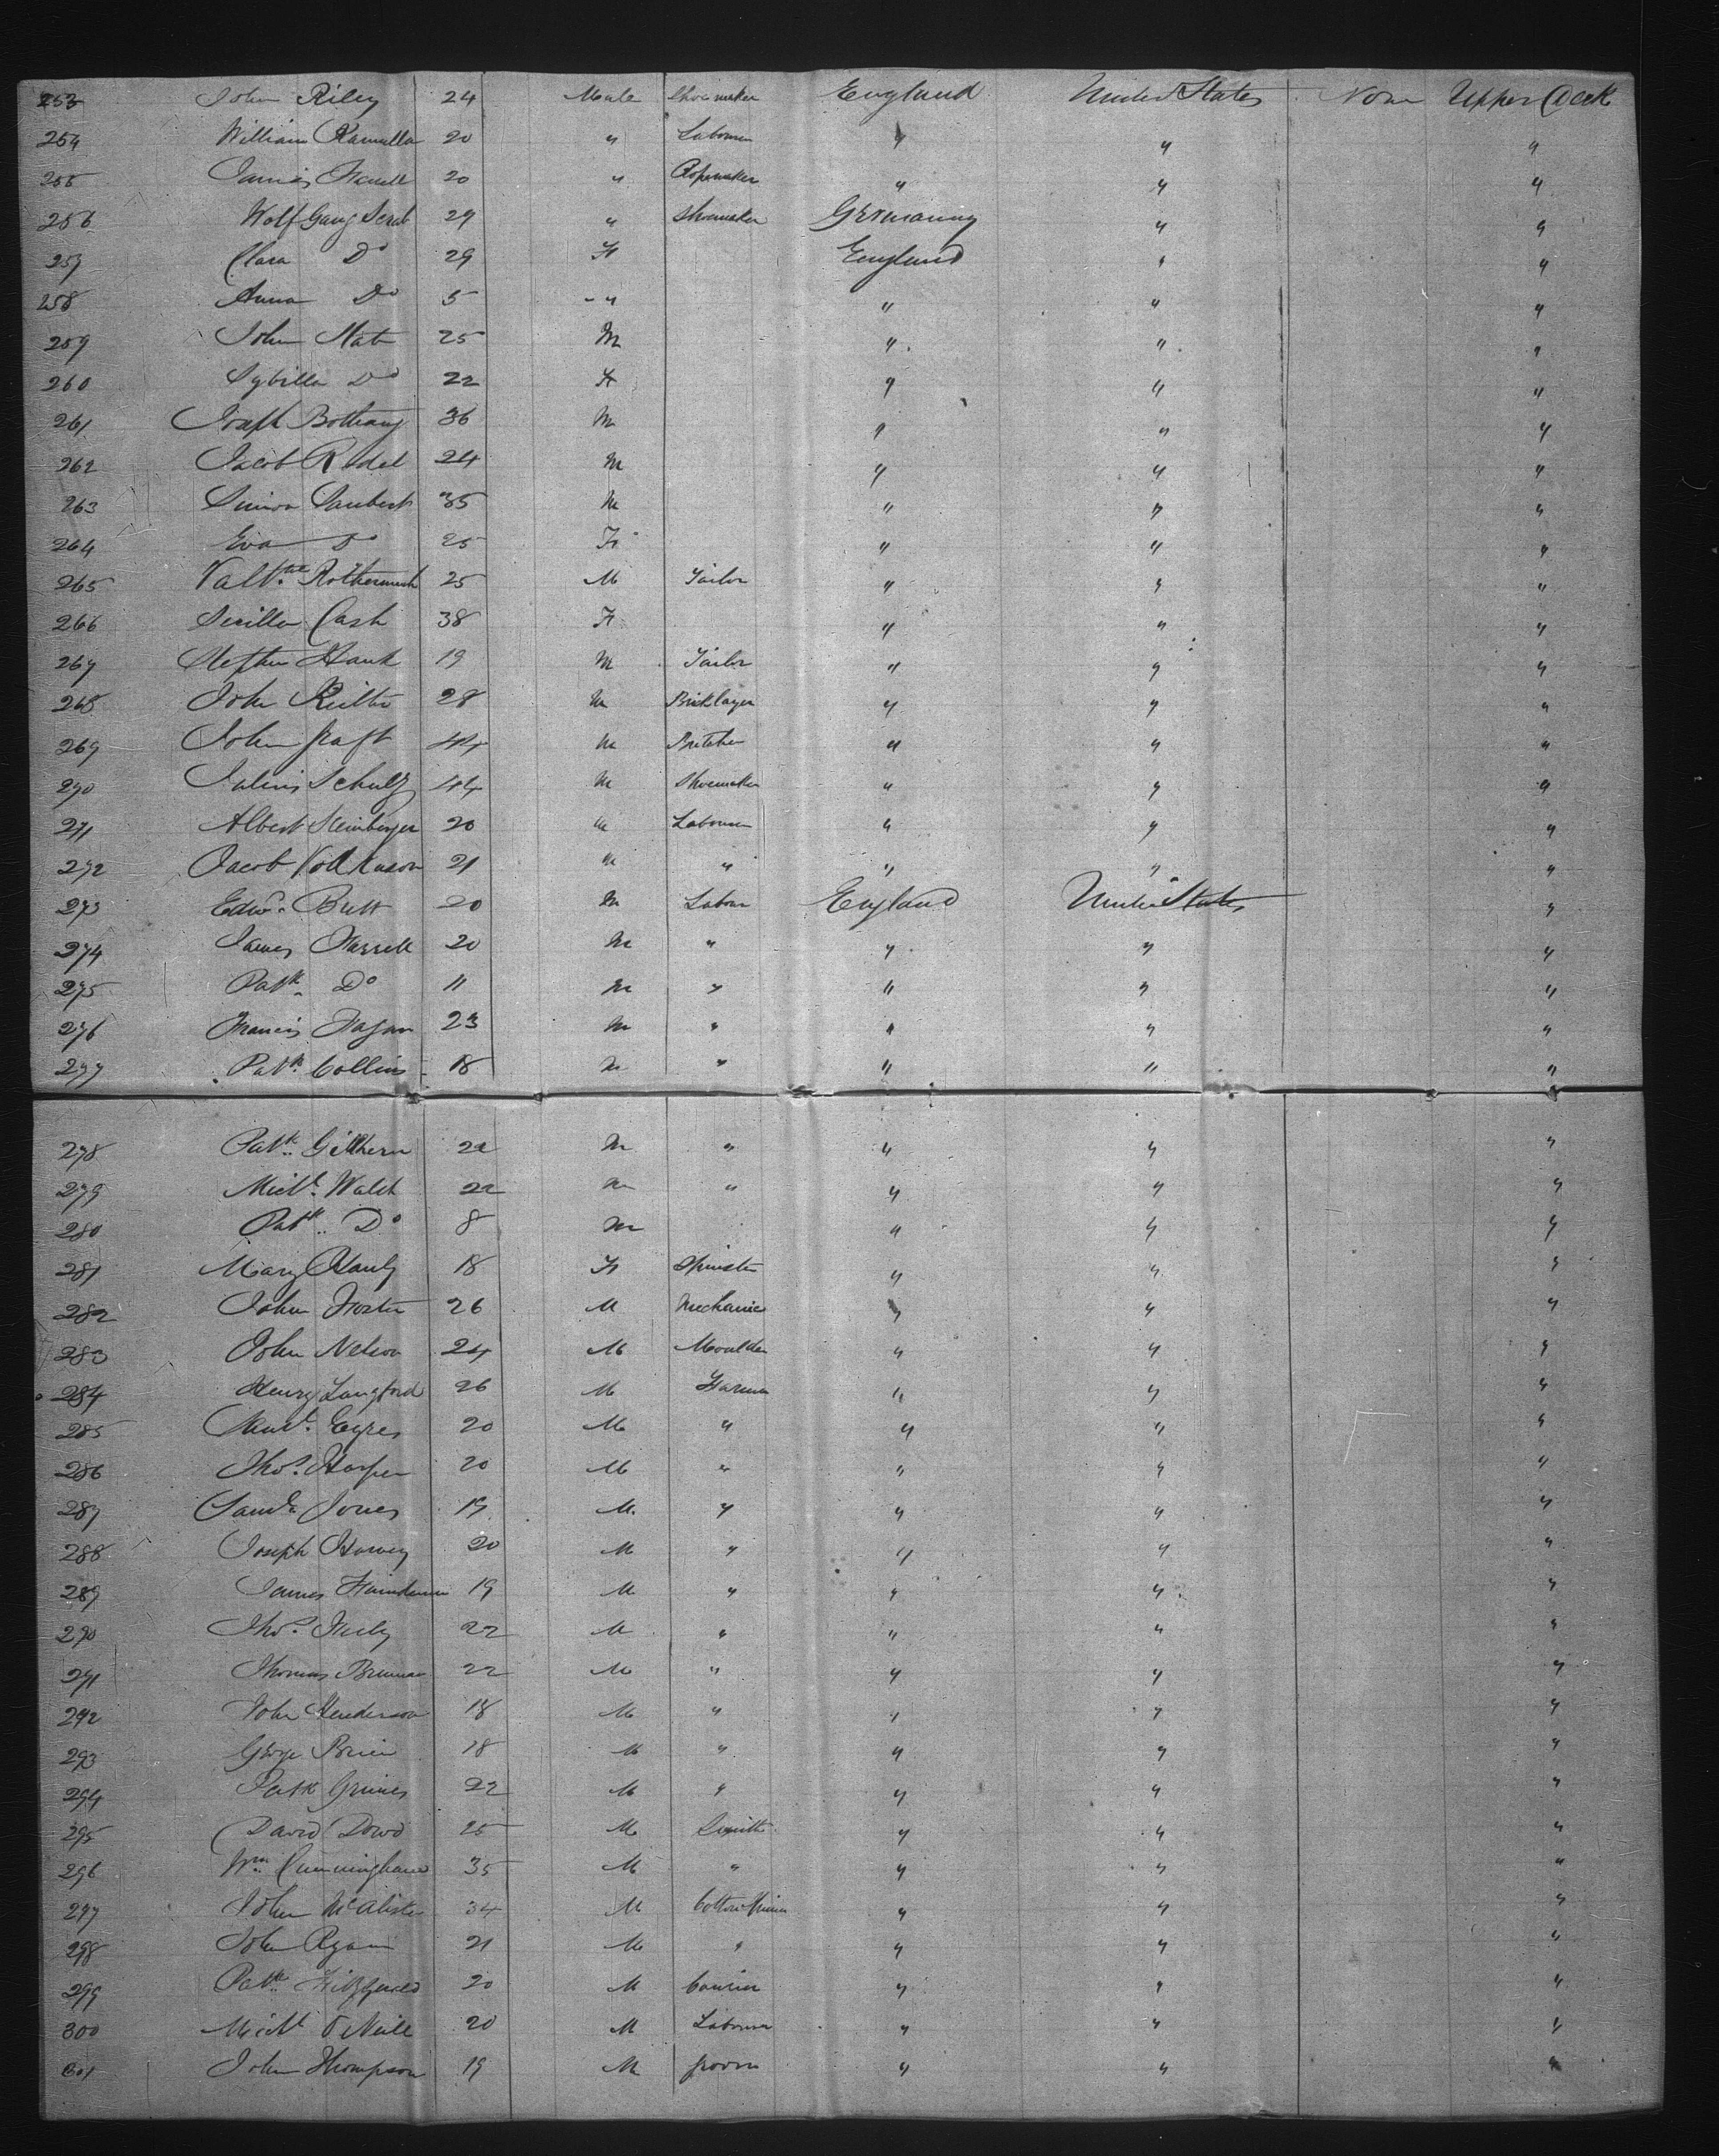 253 John Riley 24 Male Shoemaker England United States None Upper Deck
254 William 20 " Labourer " " "
255 James 20 " Ropemaker " " "
256 Wolf Gang 29 " Shoemaker Germanny " "
257 Clara Do 29 F England " "
258 Anna Do 5 " " " "
259 John 25 M " " "
260 Sybilla Do 22 F " " "
261 Joseph 36 M " " "
262 Jacob Rodel 24 M " " "
263 Simon 35 M " " "
264 Eva Do 25 F " " "
265 25 M Tailor " " "
266 Cash 38 F " " "
267 Stephen Hauk 19 M Tailor " " "
268 John 28 M Bricklayer " " "
269 John 44 M Butcher " " "
270 Julius Schulz 44 M Shoemaker " " "
271 Albert Steinberger 20 M Labourer " " "
272 Jacob 21 M " " " "
273 Edwd. Butt 20 M Labour England United States "
274 James Farrell 20 M " " " "
275 Patk. Do 11 M " " " "
276 Francis Fagan 23 M " " " "
277 Patk. Collins 18 M " " " "
278 Patk. 22 M " " " "
279 Michl. Walsh 22 M " " " "
280 Patk. Do 8 M " " "
281 Mary 18 F Spinster " " "
282 John Foster 26 M Mechanic " " "
283 John Nelson 24 M Moulder " " "
284 Henry Langford 26 M Farmer " " "
285 Saml. Eyres 20 M " " " "
286 Thos. Harper 20 M " " " "
287 Jones 19 M. " " " "
288 Joseph Harvey 20 M " " " "
289 James 19 M " " " "
290 Thos. 22 M " " " "
291 Thomas Brennan 22 M " " " "
292 John Henderson 18 M " " " "
293 George 18 M " " " "
294 Patk Grimes 22 M " " " "
295 David Dowd 25 M Smith " " "
296 Wm. Cunningham 35 M " " " "
297 John McAlister 34 M Cotton " " "
298 John Ryan 21 M " " " "
299 Patk. Fitzgerald 20 M " " "
300 Michl O'Neill 20 M Labourer " " "
301 John Thompson 19 M Groom " " "